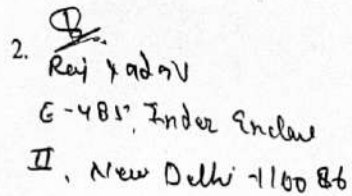 2.
Raj Yadav
E-485, Inder Enclave
II, New Delhi -110086